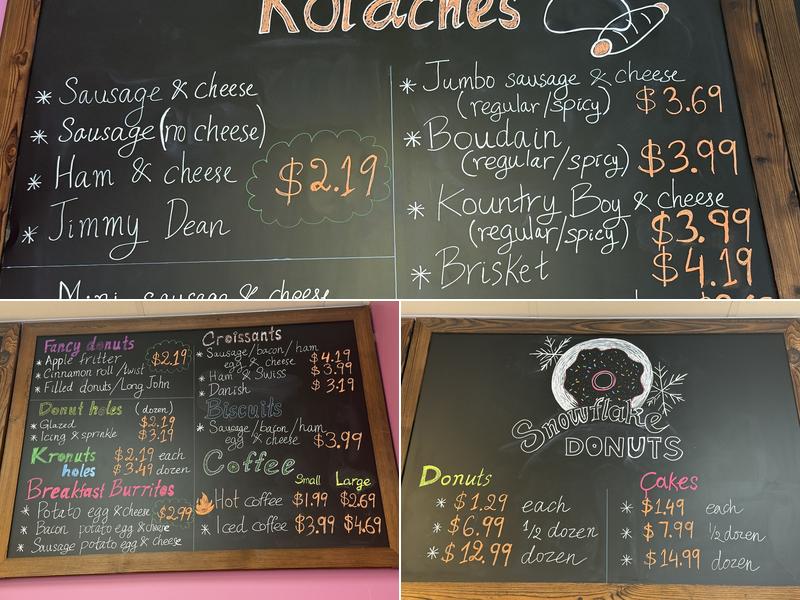 Kolaches
* Sausage & cheese
* Sausage (no cheese)
* Ham & cheese
* Jimmy Dean
$2.19
Mini sausage & cheese
* Jumbo sausage & cheese
(regular/spicy) $3.69
* Boudain
(regular/spicy) $3.99
* Kountry Boy & cheese
(regular/spicy) $3.99
* Brisket $4.19
Fancy donuts
* Apple fritter
* Cinnamon roll/twist
* Filled donuts/Long John
$2.19
Donut holes (dozen)
* Glazed $2.19
* Icing & sprinkle $3.19
Kronuts $2.19 each
holes $3.49 dozen
Breakfast Burritos
* Potato egg & cheese
* Bacon potato egg & cheese
* Sausage potato egg & cheese
$2.99
Croissants
* Sausage/bacon/ham
egg & cheese $4.19
* Ham & Swiss $3.99
* Danish $3.19
Biscuits
* Sausage/bacon/ham
egg & cheese $3.99
Coffee
Small Large
Hot coffee $1.99 $2.69
* Iced coffee $3.99 $4.69
Snowflake
DONUTS
Donuts
* $1.29 each
* $6.99 1/2 dozen
* $12.99 dozen
Cakes
* $1.49 each
* $7.99 1/2 dozen
* $14.99 dozen